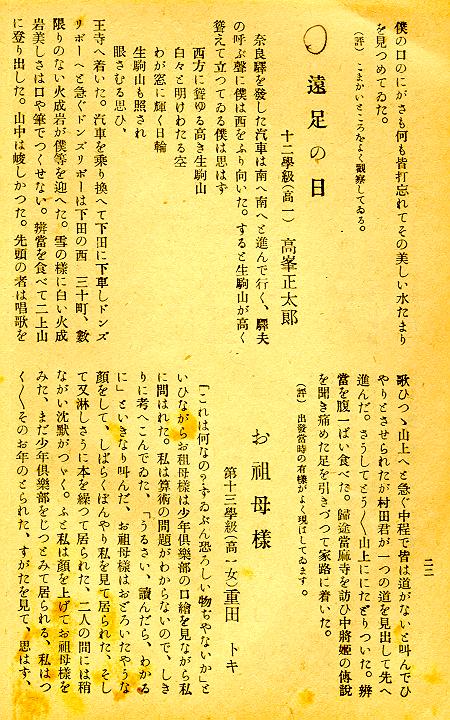 僕の口のにがさも何も皆打忘れてその美しい水たまり
を見つめてゐた。
(評) こまかいところをよく觀察してゐる。
遠足の日
十二學級(高一) 高峯正太郎
奈良驛を發した汽車は南へ南へと進んで行く、驛夫
の呼ぶ聲に僕は西をふり向いた。すると生駒山が高く
聳えて立つてゐる僕は思はず
西方に聳ゆる高き生駒山
白々と明けわたる空
わが窓に輝く日輪
生駒山も照され
眼さむる思ひ、
王寺へ着いた。汽車を乘り換へて下田に下車しドンズ
リボーへと急ぐドンズリボーは下田の西 三十町、數
限りのない火成岩が僕等を迎へた。雪の樣に白い火成
岩美しさは口や筆でつくせない。辨當を食べて二上山
に登り出した。山中は峻しかつた。先頭の者は唱歌を
歌ひつゝ山上へと急ぐ中程で皆は道がないと叫んでひ
やりとさせられたが村田君が一つの道を見出して先へ
進んだ。さうしてとう〳〵山上ににたどりついた。辨
當を腹一ぱい食べた。歸途當麻寺を訪ひ中將姫の傳説
を聞き痛めた足を引きづつて家路に着いた。
(評) 出發當時の有樣がよく現はしてゐます。
お祖母樣
第十三學級(高一女)重田 トキ
「これは何なの?ずゐぶん恐ろしい物ぢやないか」と
いひながらお祖母樣は少年倶樂部の口繪を見ながら私
に問はれた。私は算術の問題がわからないので、しき
りに考へこんでゐた、「うるさい、讀んだら、わかる
に」といきなり叫んだ、お祖母様はおどろいたやうな
顏をして、しばらくぼんやり私を見て居られた、そし
て又淋しさうに本を繰つて居られた、二人の間には稍
ながい沈默がつゞく。ふと私は顏を上げてお祖母樣を
みた、まだ少年倶樂部をじつとみて居られる、私はつ
く〴〵そのお年のとられた、すがたを見て、思はず、
二二